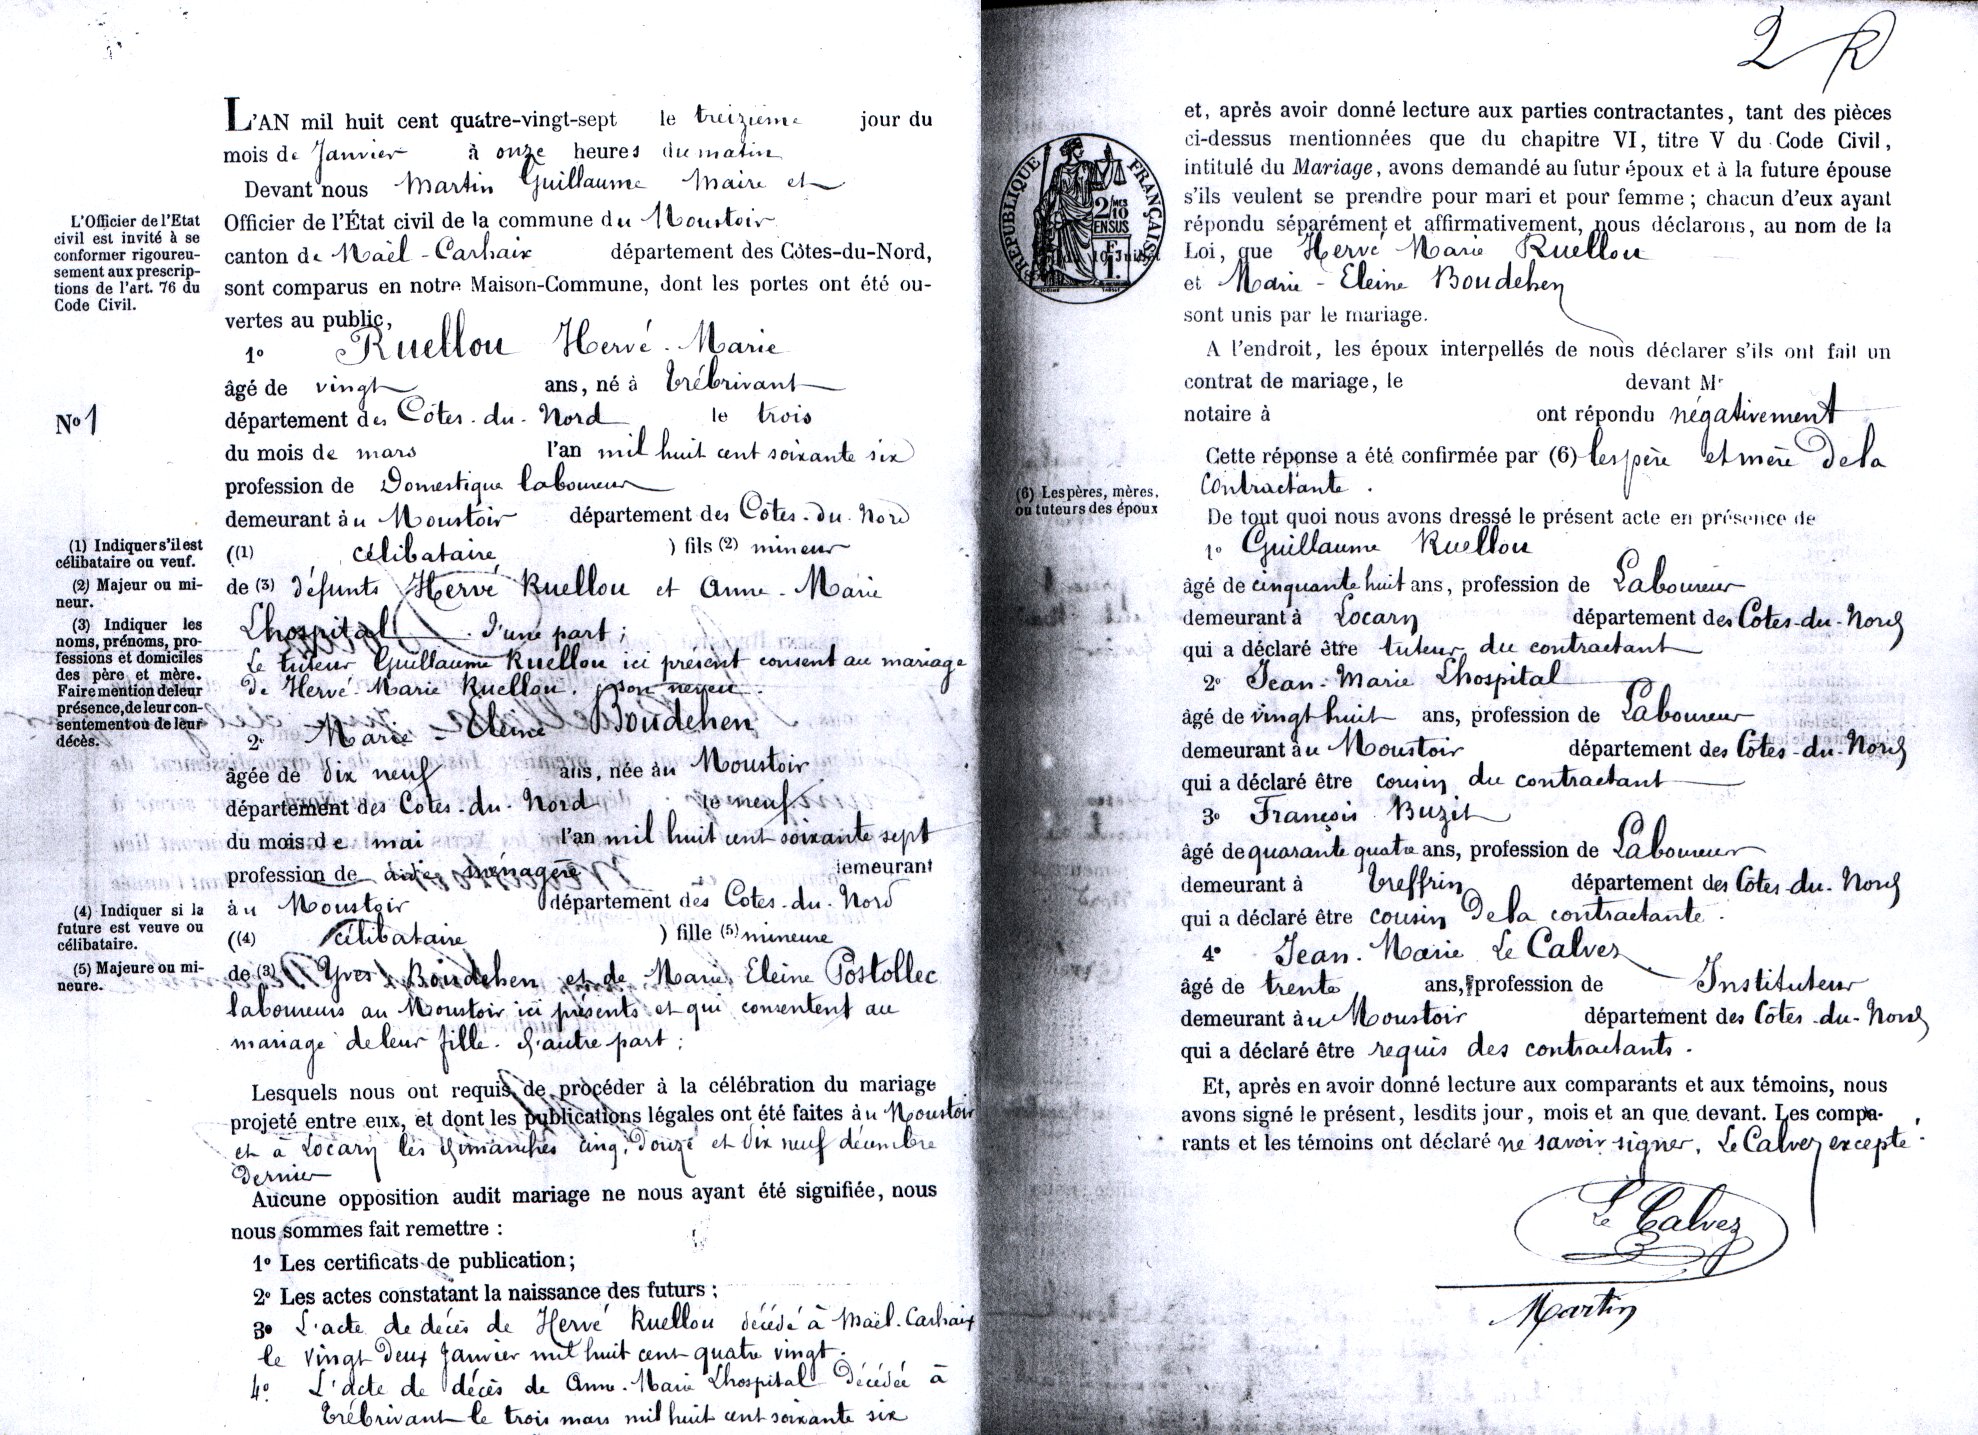 L'AN mil huit cent quatre-vingt-sept le treizième jour du
mois de Janvier à onze heures du matin
Devant nous Martin Guillaume Maire et
Officier de l'État civil de la commune du Moustoir
canton de Maël-Carhaix département des Côtes-du-Nord,
sont comparus en notre Maison-Commune, dont les portes ont été ou-
vertes au public,
1º Ruellou Hervé-Marie
âgé de vingt ans, né à Trébrivant
département des Côtes-du-Nord le trois
du mois de mars l'an mil huit cent soixante six
profession de Domestique laboureur
demeurant au Moustoir département des Côtes-du-Nord
((1) célibataire ) fils (2) mineur
de (3) défunts Hervé Ruellou et Anne-Marie
Lhospital d'une part;
Le tuteur Guillaume Ruellou ici présent consent au mariage
de Hervé-Marie Ruellou, son neveu.
2º Marie-Eleine Boudehen
âgée de dix neuf ans, née au Moustoir
département des Côtes-du-Nord le neuf
du mois de mai l'an mil huit cent soixante sept
profession de aide ménagère demeurant
au Moustoir département des Côtes-du-Nord
((4) célibataire ) fille (5) mineure
de (3) Yves Boudehen et de Marie Eleine Postollec
laboureurs au Moustoir ici présents et qui consentent au
mariage de leur fille. d'autre part;
Lesquels nous ont requis de procéder à la célébration du mariage
projeté entre eux, et dont les publications légales ont été faites au Moustoir
et à Locarn les dimanches cinq, douze et dix neuf décembre
dernier
Aucune opposition audit mariage ne nous ayant été signifiée, nous
nous sommes fait remettre :
1º Les certificats de publication;
2º Les actes constatant la naissance des futurs;
3º L'acte de décès de Hervé Ruellou décédé à Maël-Carhaix
le vingt deux Janvier mil huit cent quatre vingt.
4º L'acte de décès de Anne-Marie Lhospital décédée à
Trébrivant le trois mars mil huit cent soixante six
L'Officier de l'Etat
civil est invité à se
conformer rigoureu-
sement aux prescrip-
tions de l'art. 76 du
Code Civil.
Nº 1
(1) Indiquer s'il est
célibataire ou veuf.
(2) Majeur ou mi-
neur.
(3) Indiquer les
noms, prénoms, pro-
fessions et domiciles
des père et mère.
Faire mention de leur
présence, de leur con-
sentement ou de leur
décès.
(4) Indiquer si la
future est veuve ou
célibataire.
(5) Majeure ou mi-
neure.
2
et, après avoir donné lecture aux parties contractantes, tant des pièces
ci-dessus mentionnées que du chapitre VI, titre V du Code Civil,
intitulé du Mariage, avons demandé au futur époux et à la future épouse
s'ils veulent se prendre pour mari et pour femme; chacun d'eux ayant
répondu séparément et affirmativement, nous déclarons, au nom de la
Loi, que Hervé Marie Ruellou
et Marie-Eleine Boudehen
sont unis par le mariage.
A l'endroit, les époux interpellés de nous déclarer s'ils ont fait un
contrat de mariage, le devant Mr
notaire à ont répondu négativement
Cette réponse a été confirmée par (6) les père et mère de la
contractante.
De tout quoi nous avons dressé le présent acte en présence de
1º Guillaume Ruellou
âgé de cinquante huit ans, profession de Laboureur
demeurant à Locarn département des Côtes-du-Nord
qui a déclaré être tuteur du contractant
2º Jean-Marie Lhospital
âgé de vingt huit ans, profession de Laboureur
demeurant au Moustoir département des Côtes-du-Nord
qui a déclaré être cousin du contractant
3º François Buzit
âgé de quarante quatre ans, profession de Laboureur
demeurant à Treffrin département des Côtes-du-Nord
qui a déclaré être cousin de la contractante.
4º Jean-Marie Le Calvez
âgé de trente ans, profession de Instituteur
demeurant au Moustoir département des Côtes-du-Nord
qui a déclaré être requis des contractants.
Et, après en avoir donné lecture aux comparants et aux témoins, nous
avons signé le présent, lesdits jour, mois et an que devant. Les compa-
rants et les témoins ont déclaré ne savoir signer, Le Calvez excepté.
Le Calvez
Martin
RÉPUBLIQUE FRANÇAISE
2/10 MES
EN SUS
F
1.
10 Juillet
(6) Les pères, mères,
ou tuteurs des époux